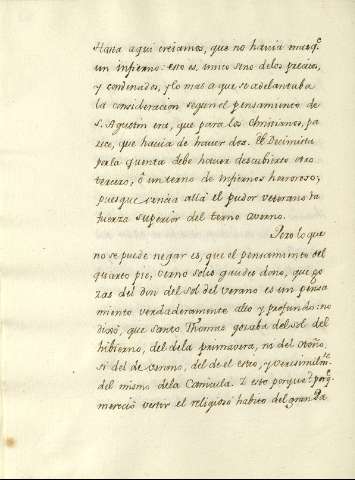 Hasta aqui creiamos, que no havia mas q.e
un infierno: esto es, unico seno de los precitos,
y condenados, y lo mas a que se adelantaba
la consideracion segun el pensamiento de
S. Agustin era, que para los Christianos, pa
rece, que havia de haver dos. El Decimista
por la quenta debe haver descubierto otro
tercero; ô un terno de Infiernos horroroso;
puesque allá el pudor veterano la
fuerza superior del terno averno.
Pero lo que
no se puede negar es, que el pensamiento del
quarto pie, verno solis gaudes dono, que go
zas del don del sol del verano es un pensa
miento verdaderamente alto y profundo: no
dixo, que Santo Thomas gozaba del sol del
hibierno, del de la primavera, ni del otoño,
si del de verano, del de el estio, y verisimilm.te
del mismo de la Canicula. I esto porque? porq.e
mereció vestir el religioso habito del gran Pa